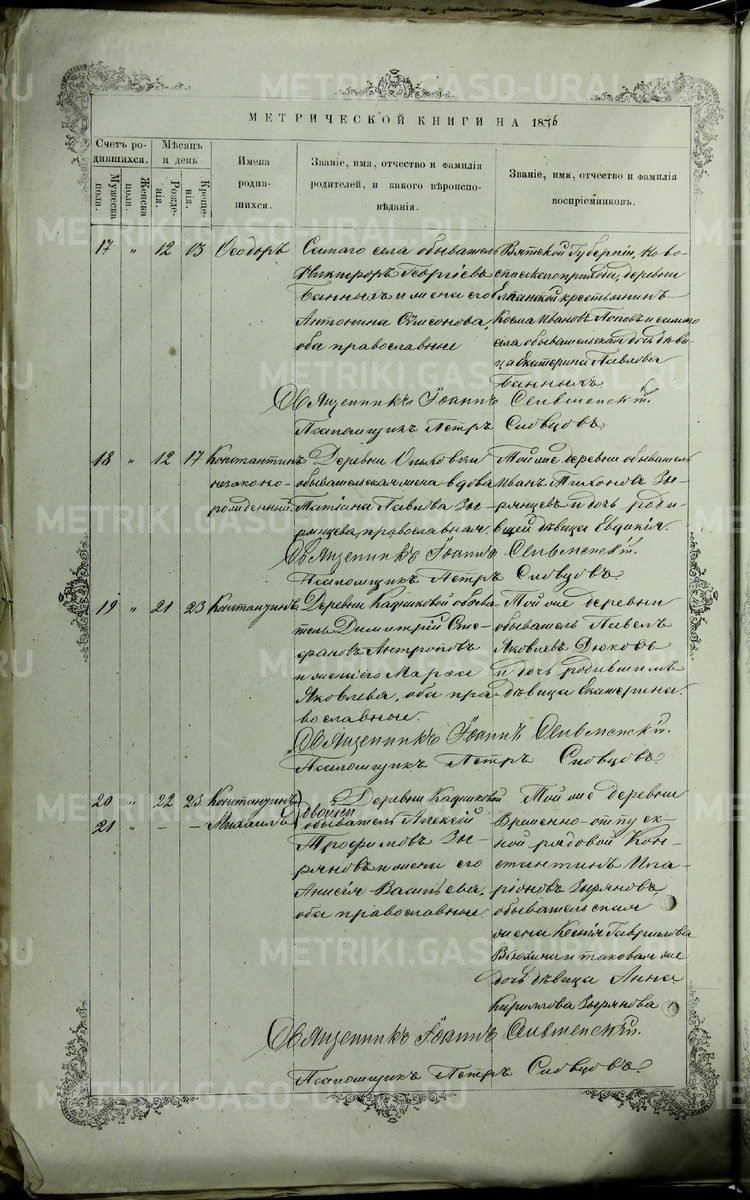 МЕТРИЧЕСКОЙ КНИГИ НА 1876
Счетъ ро-
дившихся.
Мужеска
пола.
Женска
пола.
Мѣсяцъ
и день
Рожде-
нія.
Креще-
нія.
Имена
родив-
шихся.
Званіе, имя, отчество и фамилія
родителей, и какого вѣроиспо-
вѣданія.
Званіе, имя, отчество и фамилія
воспріемниковъ.
17 " 12 13 Ѳеодоръ
Самаго села обыватель
Никифоръ Георгіевъ
Банныхъ и жена его
Антонина Симеонова,
оба православные
Вятской Губерніи, Ново-
спасскаго прихода, деревни
крестьянинъ
Косма Ивановъ Поповъ и самаго
села обывательская дочь дѣви-
ца Екатерина Павлова
Банныхъ
Священникъ Іоаннъ
Псаломщикъ Петръ Словцовъ.
18 " 12 17 Константинъ
незаконо-
рожденный.
Деревни
обывательская жена вдова
Татіана Павлова Зы-
рянцева, православная.
Той же деревни обыватель
Иванъ Тихоновъ Зы-
рянцевъ и дочь роди-
вшей дѣвица Евдокія.
Священникъ Іоаннъ
Псаломщикъ Петръ Словцовъ.
19 " 21 23 Константинъ
Деревни Кадниковой обыва-
тель Димитрій Сте-
фановъ Антроповъ
и жена его Марѳа
Яковлева, оба пра-
вославные.
Той же деревни
обыватель Павелъ
Яковлевъ Дюковъ
и дочь родившихъ
дѣвица Екатерина.
Священникъ Іоаннъ
Псаломщикъ Петръ Словцовъ.
20 " 22 23 Константинъ
21 " – – Михаилъ
двойни
Деревни Кадниковой
обыватель Алексій
Трофимовъ Зы-
ряновъ и жена его
Анисія Васильева,
оба православные.
Той же деревни
Временно-отпуск-
ной рядовой Кон-
стантинъ Ила-
ріоновъ Зыряновъ,
обывательская
жена Ксенія Гаврилова
и таковая же
дочь дѣвица Анна
Кириллова Зырянова
Священникъ Іоаннъ
Псаломщикъ Петръ Словцовъ.
METRIKI.GASO-URAL.RU